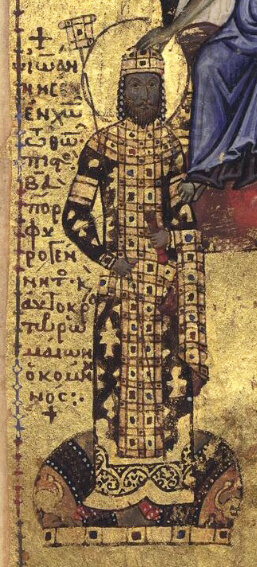 +
ἰωάν
νης
ἐν χω
τω θω
πιστος
βα
πορ
φυ
ρογέν
νητο κ
αυτοκρα
τωρ ρω
μαίων
ὁ κομνη
νος :
+